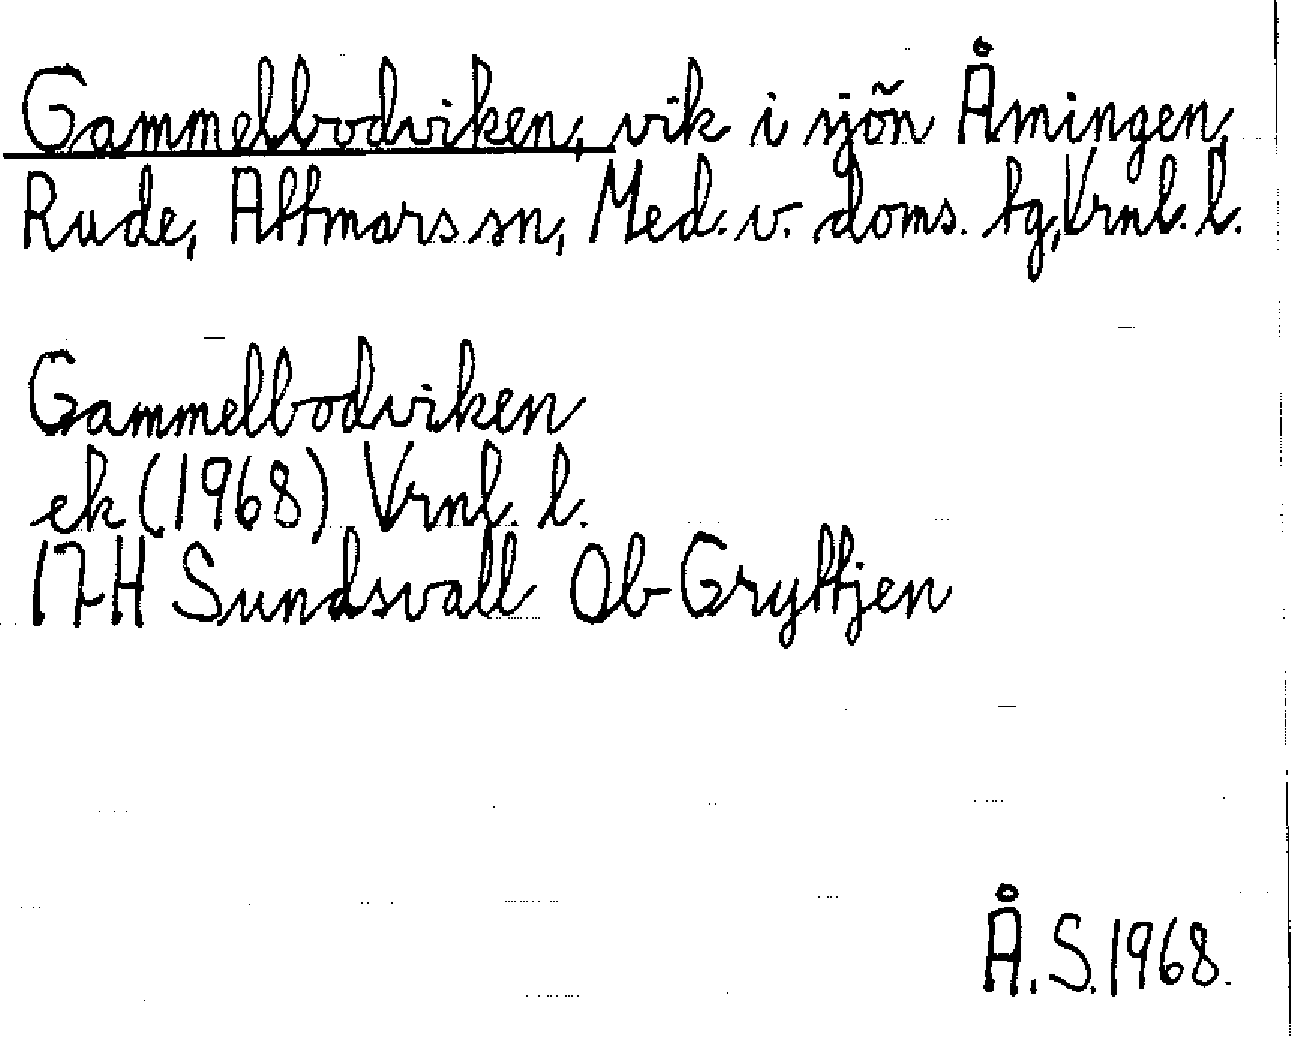 Gammelbodviken, vik i sjön Åmingen,
Rude, Attmars sn, Med. v. doms. tg, Vrnl. l.
Gammelbodviken
ek (1968) Vrnl. l.
17H Sundsvall Ob-Gryttjen
Å. S. 1968.